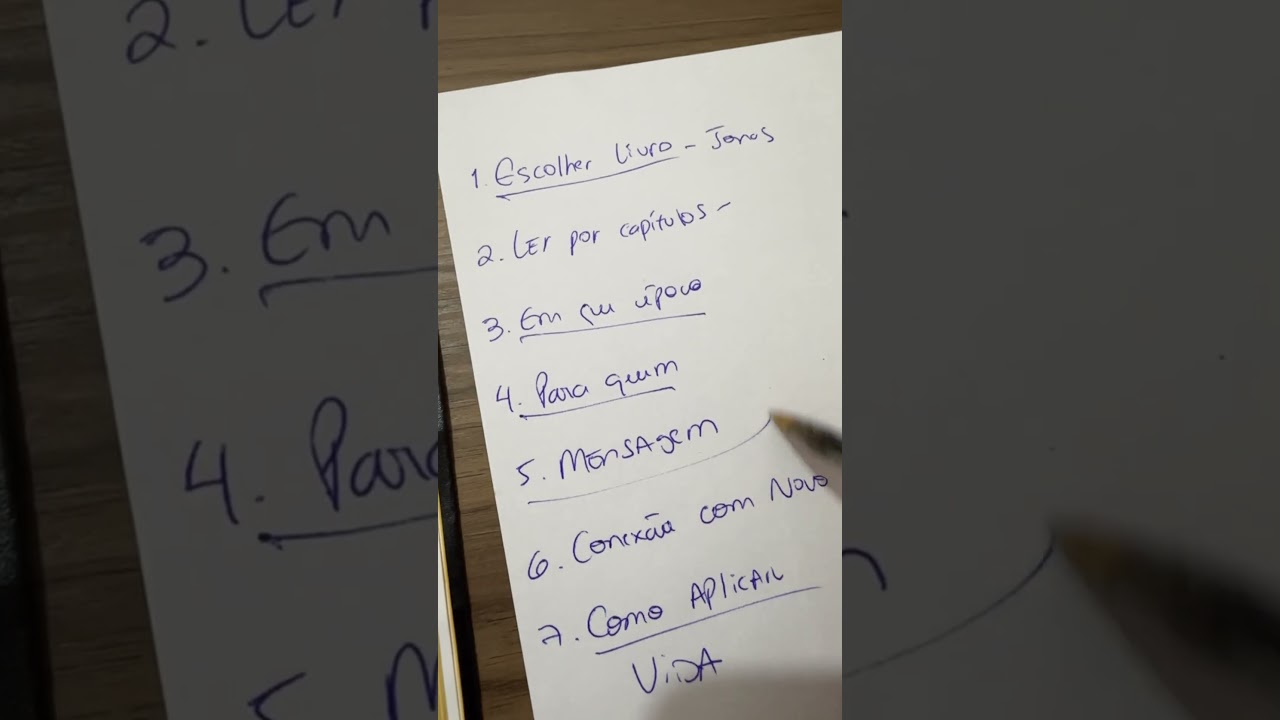 1. Escolher livro - Jonas
2. Ler por capítulos -
3. Em que época
4. Para quem
5. Mensagem
6. Conexão com Novo
7. Como Aplicar
Vida